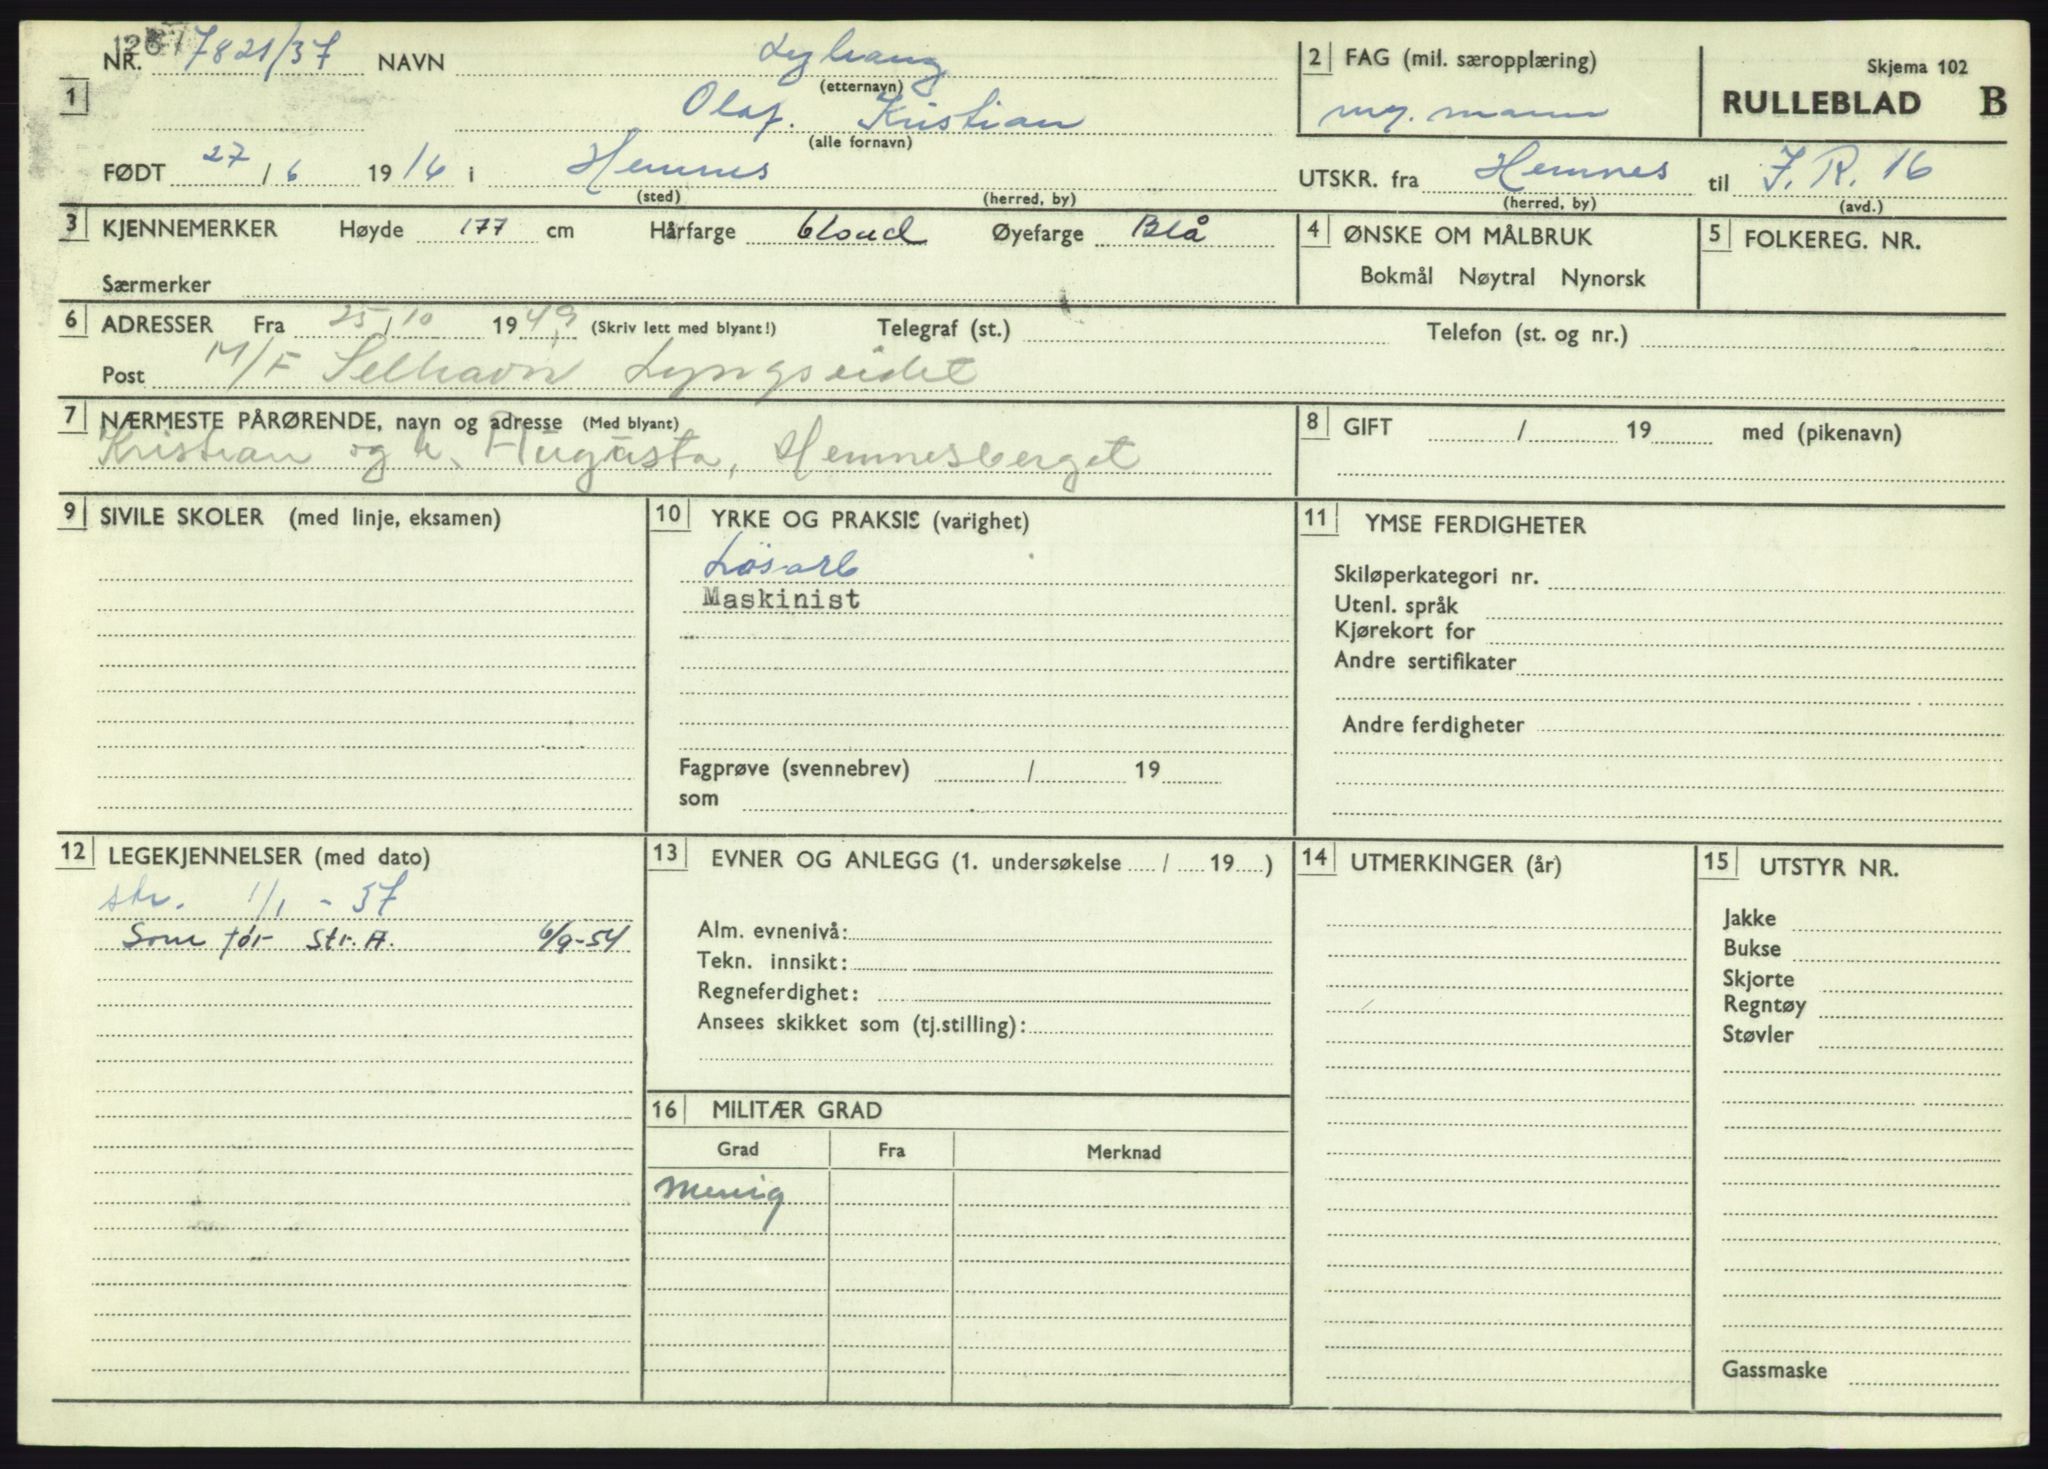 1267 NR. 7821/37 NAVN Lyhaug
(etternavn)
1 Olaf. Kristian
(alle fornavn)
FØDT 27/6 1916 i Hemnes
(sted) (herred, by)
2 FAG (mil. særopplæring)
mg. mann
Skjema 102
RULLEBLAD B
UTSKR. fra Hemnes til J. R. 16
(herred, by) (avd.)
3 KJENNEMERKER Høyde 177 cm Hårfarge blond Øyefarge Blå
Særmerker
4 ØNSKE OM MÅLBRUK
Bokmål Nøytral Nynorsk
5 FOLKEREG. NR.
6 ADRESSER Fra 25/10 1949 (Skriv lett med blyant!) Telegraf (st.) Telefon (st. og nr.)
Post M/F Selhavn Lyngseidet
7 NÆRMESTE PÅRØRENDE, navn og adresse (Med blyant)
Kristian og h. Augusta, Hemnesberget
8 GIFT / 19 med (pikenavn)
9 SIVILE SKOLER (med linje, eksamen)
10 YRKE OG PRAKSIS (varighet)
Løsarb
Maskinist
Fagprøve (svennebrev) / 19
som
11 YMSE FERDIGHETER
Skiløperkategori nr.
Utenl. språk
Kjørekort for
Andre sertifikater
Andre ferdigheter
12 LEGEKJENNELSER (med dato)
str. 1/1 - 37
Som før Str. A. 6/9-54
13 EVNER OG ANLEGG (1. undersøkelse / 19 )
Alm. evnenivå:
Tekn. innsikt:
Regneferdighet:
Ansees skikket som (tj.stilling):
14 UTMERKINGER (år)
15 UTSTYR NR.
Jakke
Bukse
Skjorte
Regntøy
Støvler
Gassmaske
16 MILITÆR GRAD
Grad Fra Merknad
Menig